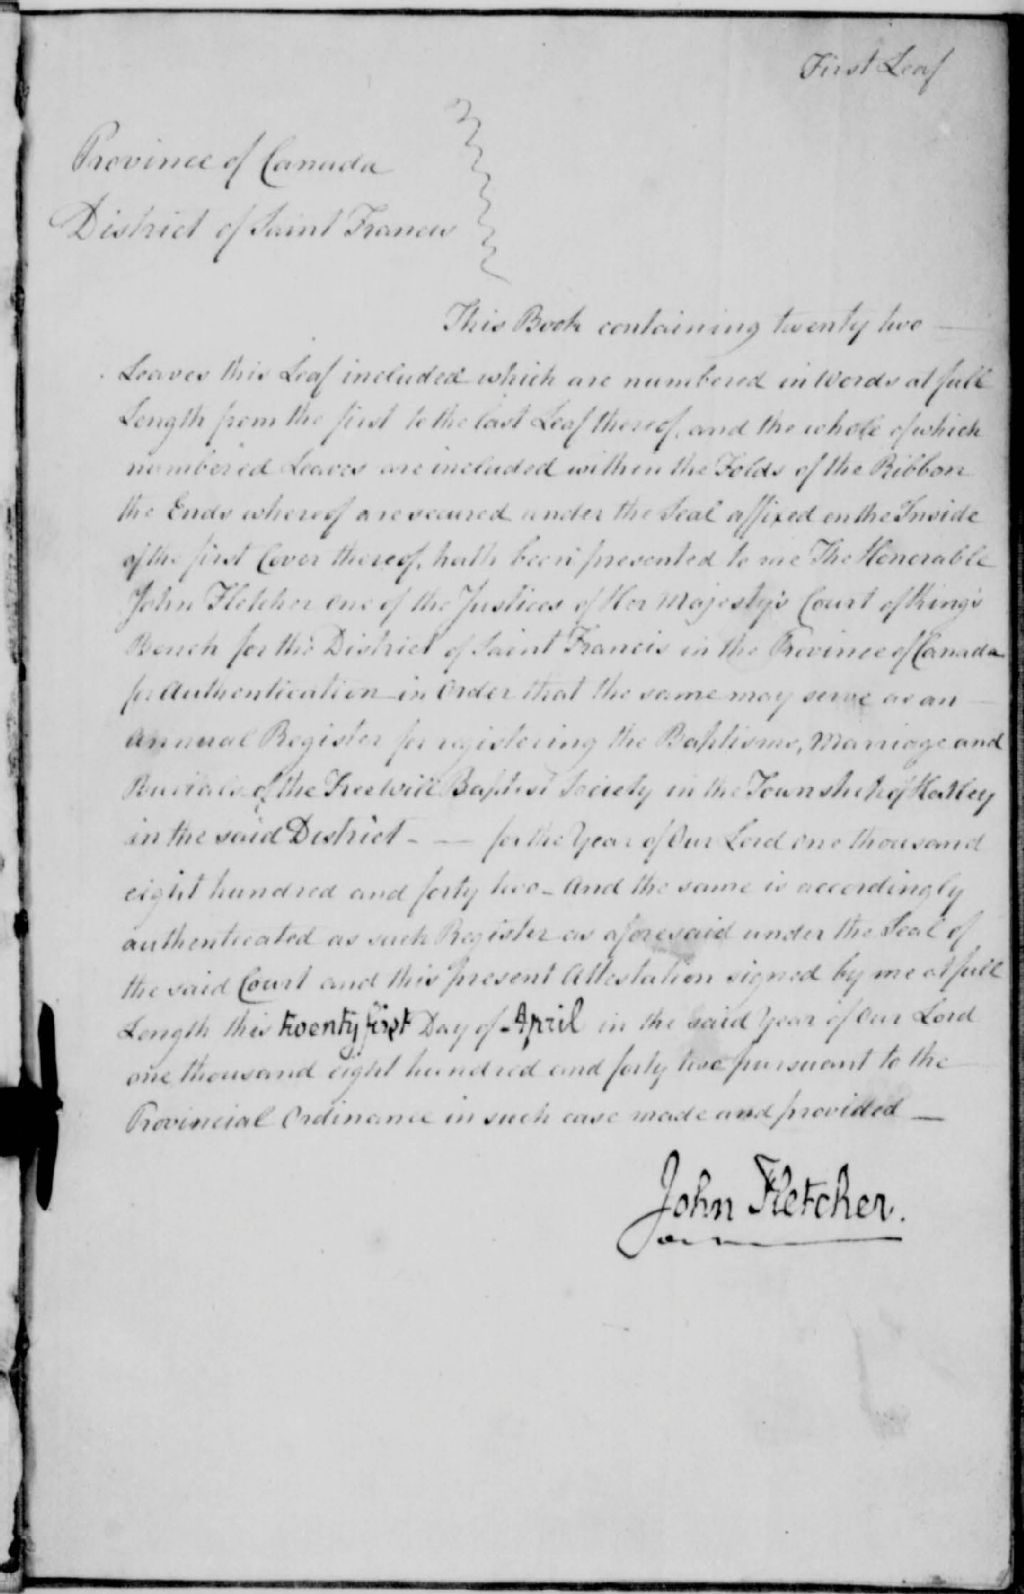 First Leaf
Province of Canada
District of Saint Francis
This Book containing twenty two
Leaves this Leaf included which are numbered in Words at full
Length from the first to the last Leaf thereof, and the whole of which
numbered Leaves are included within the Folds of the Ribbon
the Ends whereof are secured under the Seal affixed on the Inside
of the first Cover thereof, hath been presented to me The Honorable
John Fletcher one of the Justices of Her Majesty's Court of King's
Bench for the District of Saint Francis in the Province of Canada
for Authentication in Order that the same may serve as an
Annual Register for registering the Baptisms, Marriage and
Burials of the Freewill Baptist Society in the Township of Hatley
in the said District - — for the Year of Our Lord one thousand
eight hundred and forty two - And the same is accordingly
authenticated as such Register as aforesaid under the Seal of
the said Court and this present Attestation signed by me at full
Length this twenty first Day of April in the said Year of Our Lord
one thousand eight hundred and forty two pursuant to the
Provincial Ordinance in such case made and provided —
John Fletcher.